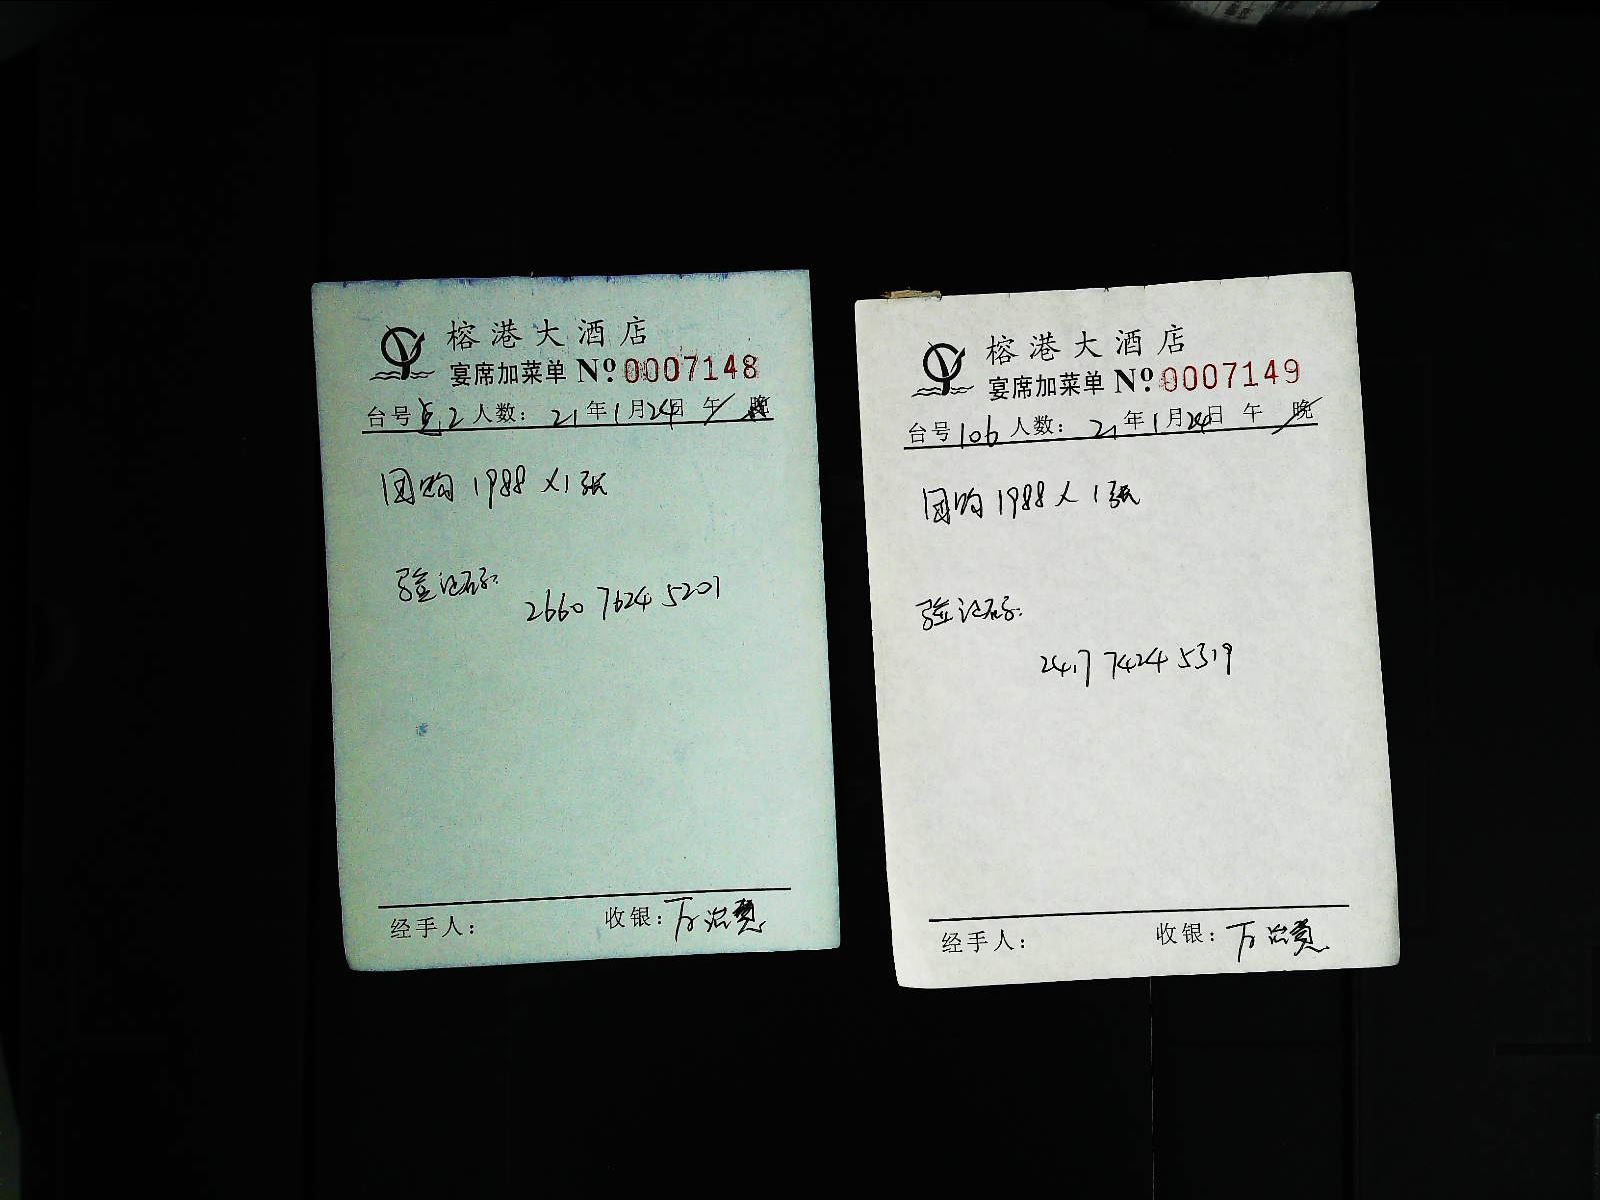 榕港大酒店
宴席加菜单 Nº 0007148
台号 2 人数： 21年1月24日 午 晚
团购 1988 X1张
验证码：
2660 7624 5201
经手人： 收银：
榕港大酒店
宴席加菜单 Nº 0007149
台号 106 人数： 21年1月24日 午 晚
团购 1988 X 1张
验证码：
2417 7424 5319
经手人： 收银：